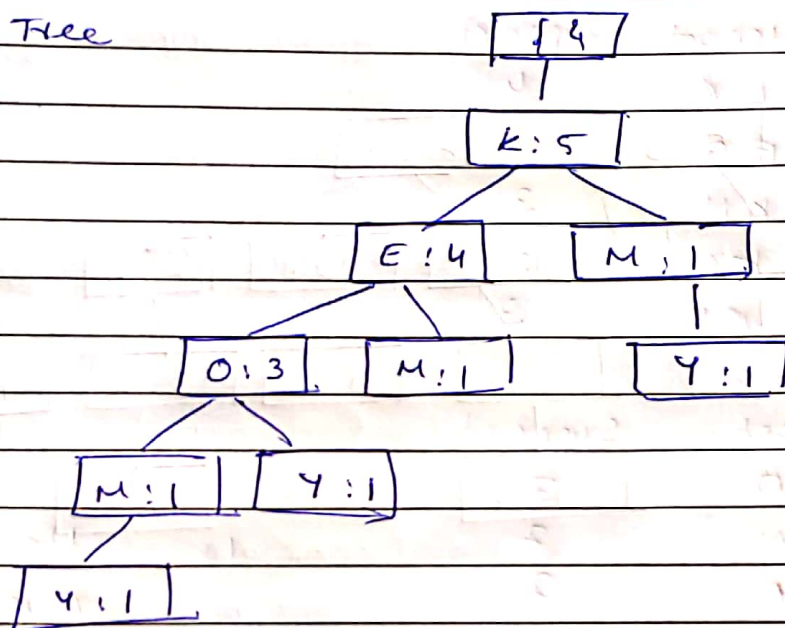 Tree
{ }
K : 5
E : 4 M : 1
O : 3 M : 1 Y : 1
M : 1 Y : 1
Y : 1